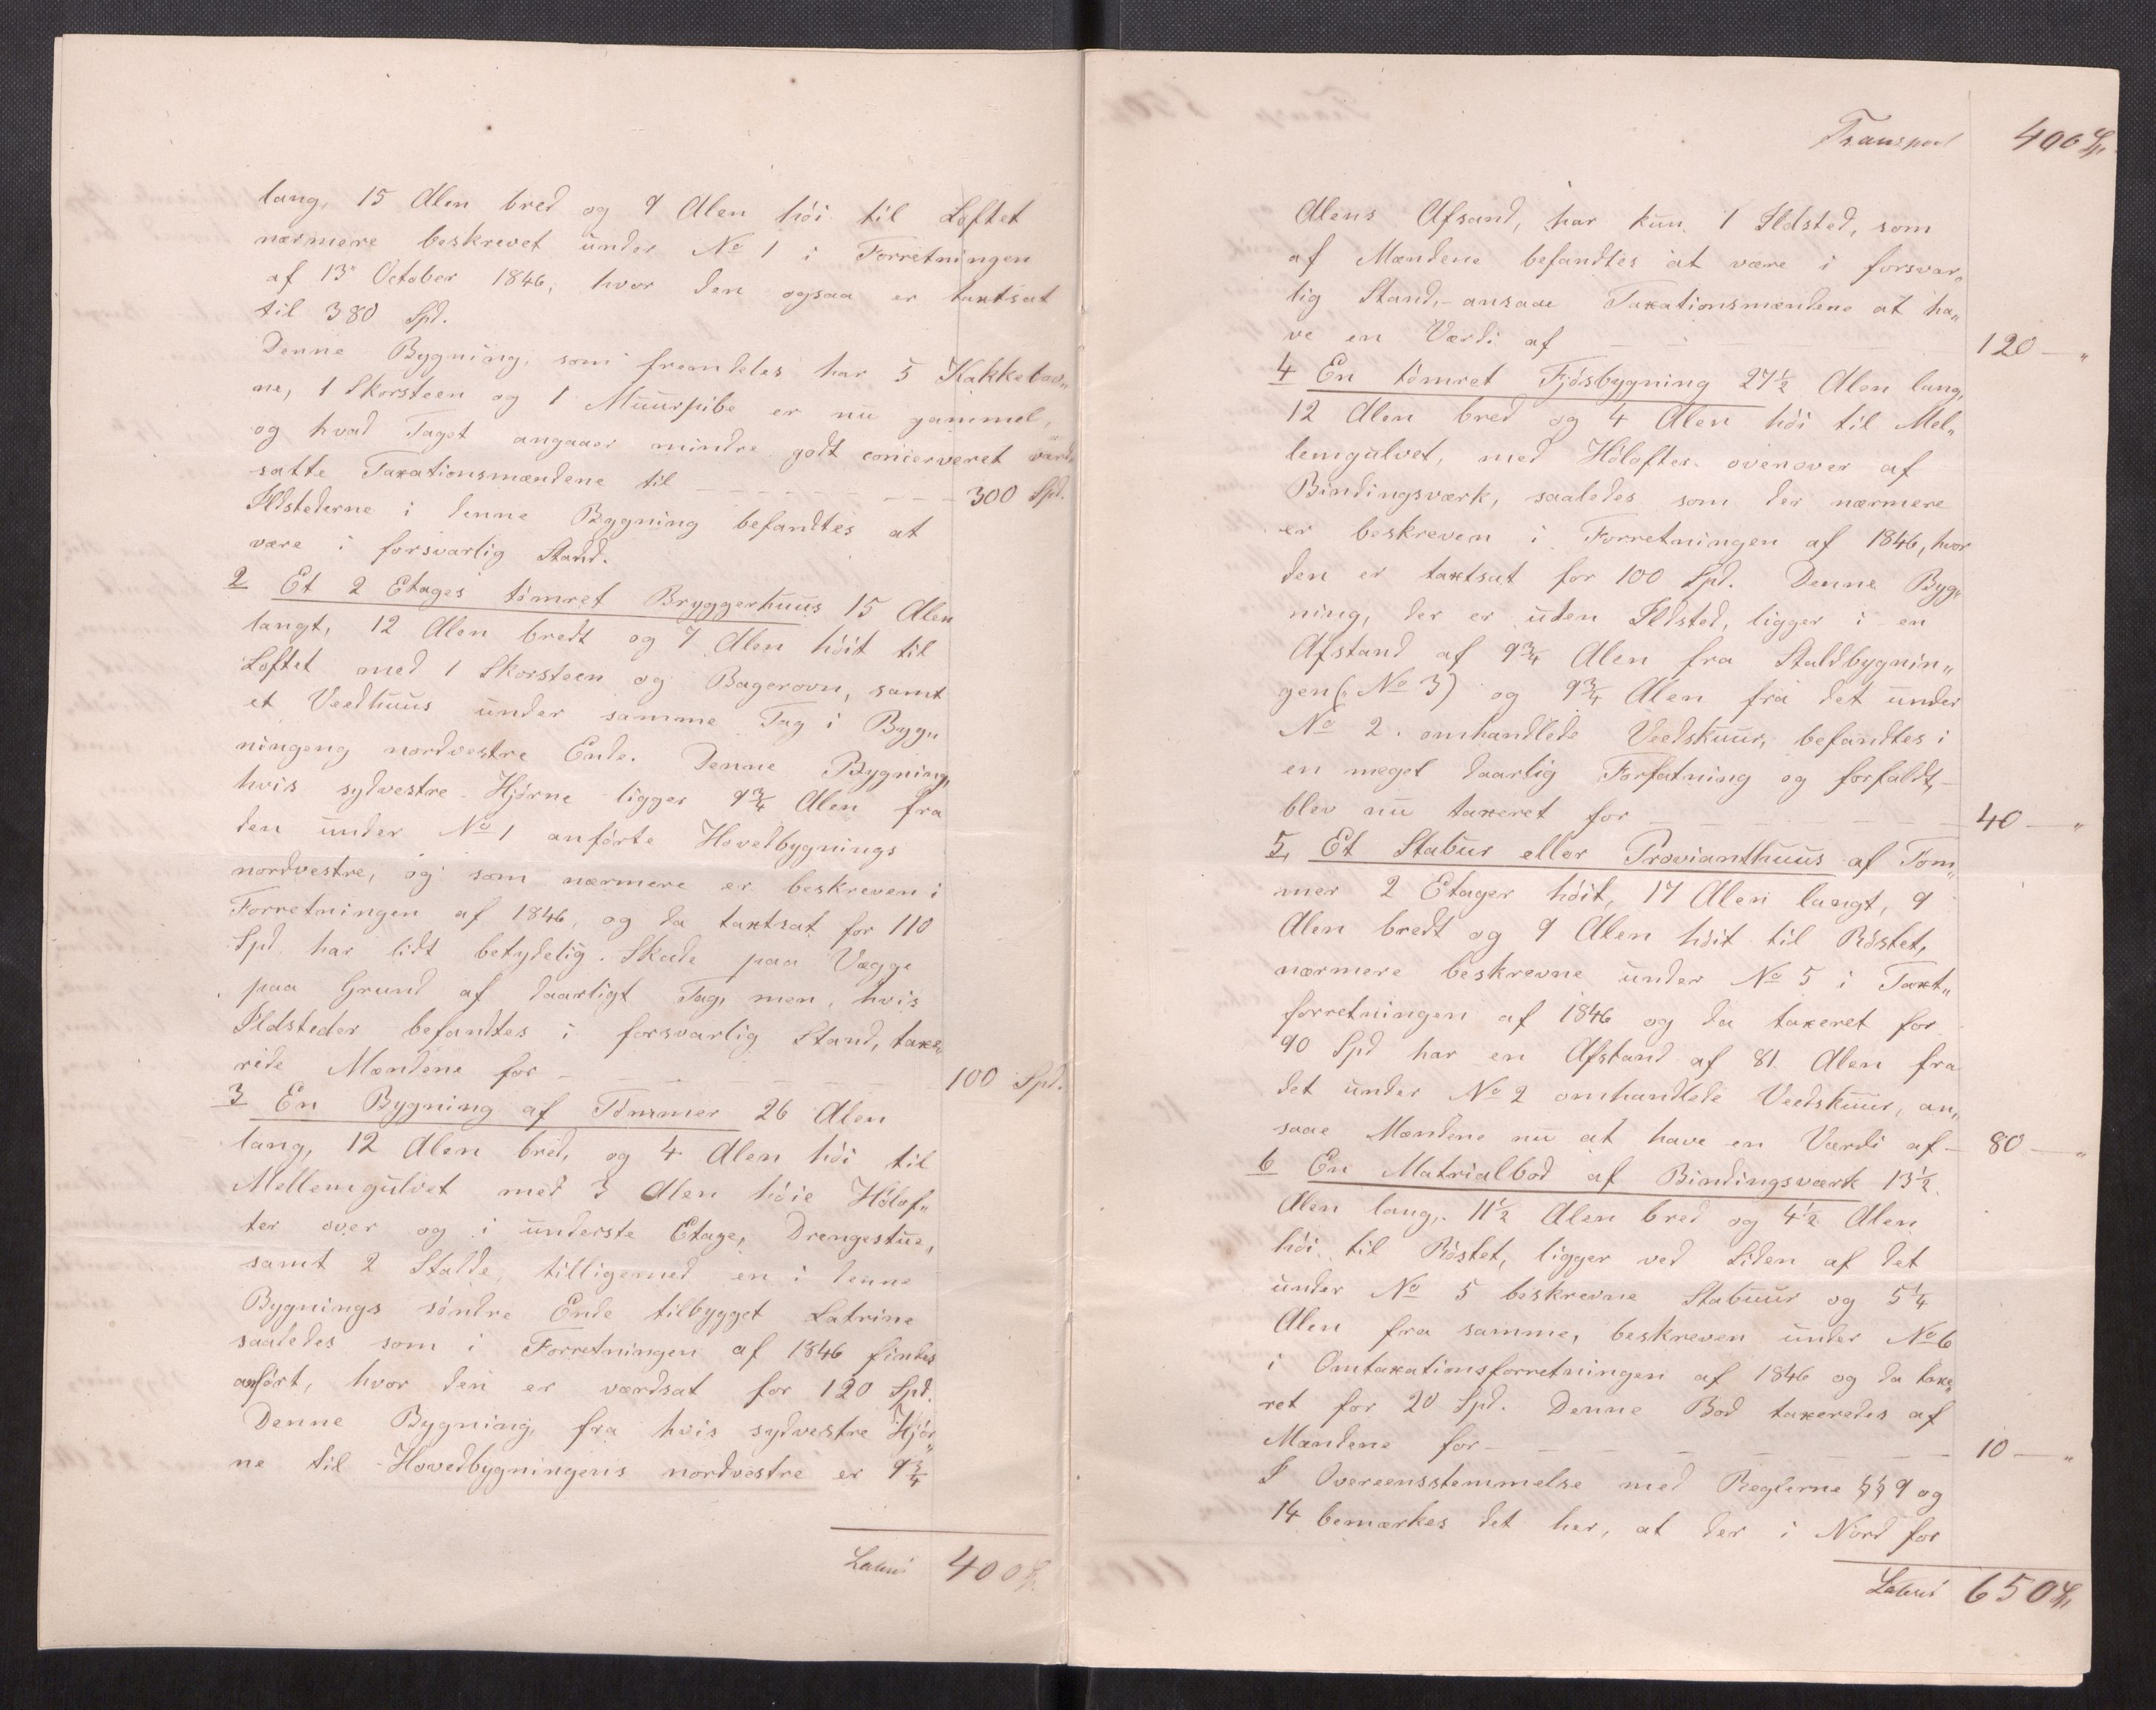 lang, 15 Alen bred og 9 Alen høi til Loftet
nærmere beskrevet under No 1 i Forretningen
af 13de October 1846, hvor den ogsaa er taxtsat
til 380 Spd.
Denne Bygning, som fremdeles har 5 Kakkelov„
ne, 1 Skorsteen og 1 Muurpibe er nu gammel,
og hvad Taget angaaer mindre godt concerveret værd„
satte Taxationsmændene til — 300 Spd.
Ildstederne i denne Bygning befandtes at
være i forsvarlig Stand.
2 Et 2 Etages tømret Bryggerhuus 15 Alen
langt, 12 Alen bredt og 7 Alen høit til
Loftet med 1 Skorsteen og Bagerovn, samt
et Veedhuus under samme Tag i Byg„
ningens nordvestre Ende. Denne Bygning,
hvis sydvestre Hjørne ligger 9 3/4 Alen fra
den under No 1 anførte Hovedbygnings
nordvestre, og som nærmere er beskreven i
Forretningen af 1846, og da taxtsat for 110
Spd. har lidt betydelig Skade paa Vægge
paa Grund af daarligt Tag, men, hvis
Ildsteder befandtes i forsvarlig Stand, taxe„
rede Mændene for — 100 Spd.
3 En Bygning af Tømmer 26 Alen
lang, 12 Alen bred, og 4 Alen høi til
Mellemgulvet med 3 Alen høie Hølof„
ter over og i underste Etage, Drengestue,
samt 2 Stalde, tilligemed en i denne
Bygnings søndre Ende tilbygget Latrine
saaledes som i Forretningen af 1846 findes
anført, hvor den er værdsat for 120 Spd.
Denne Bygning, fra hvis sydvestre Hjør„
ne til Hovedbygningens nordvestre er 9 3/4
Latus 400 Sp
Transport 400 Sp
Alens Afsand, har kun 1 Ildsted, som
af Mændene befandtes at være i forsvar„
lig Stand,- ansaae Taxationsmændene at ha„
ve en Værdi af — 120 — „
4 En tømret Fjøsbygning 27 1/2 Alen lang,
12 Alen bred og 4 Alen høi til Mel„
lemgulvet, med Høloftes ovenover af
Bindingsværk, saaledes som der nærmere
er beskreven i Forretningen af 1846, hvor
den er taxtsat for 100 Spd. Denne Byg„
ning, der er uden Ildsted, ligger i en
Afstand af 9 3/4 Alen fra Staldbygnin„
gen (No 3) og 9 3/4 Alen fra det under
No 2 omhandlede Veedskuur, befandtes i
en meget daarlig Forfatning og forfaldt,-
blev nu taxeret for — 40 — „
5, Et Stabur eller Provianthuus af Tøm„
mer 2 Etager høit, 17 Alen langt, 9
Alen bredt og 9 Alen høit til Røstet,
nærmere beskrevne under No 5 i Taxt„
forretningen af 1846 og da taxeret for
90 Spd har en Afstand af 81 Alen fra
det under No 2 omhandlede Veedskuur, an„
saae Mændene nu at have en Værdi af — 80 — „
6 En Matrialbod af Bindingsværk 13 1/2
Alen lang, 11 1/2 Alen bred og 4 1/2 Alen
høi til Røstet, ligger ved Siden af det
under No 5 beskrevne Stabuur og 5 1/4
Alen fra samme, beskreven under No 6
i Omtaxationsforretningen af 1846 og da taxe„
ret for 20 Spd. Denne Bod taxeredes af
Mændene for — 10 — „
I Overeensstemmelse med Reglerne §§ 9 og
14 bemærkes det her, at der i Nord for
Latus 650 Sp